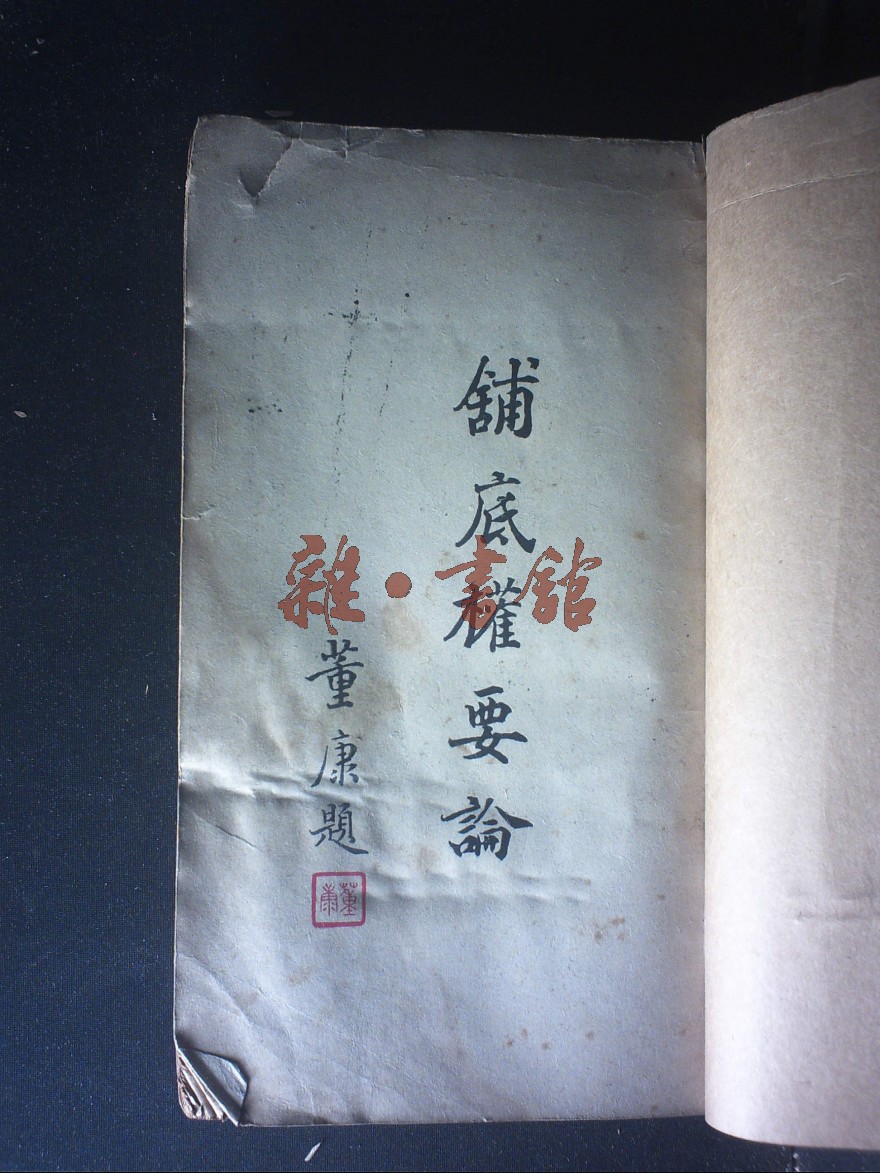 舖底權要論
董康題
董康
雜·書館